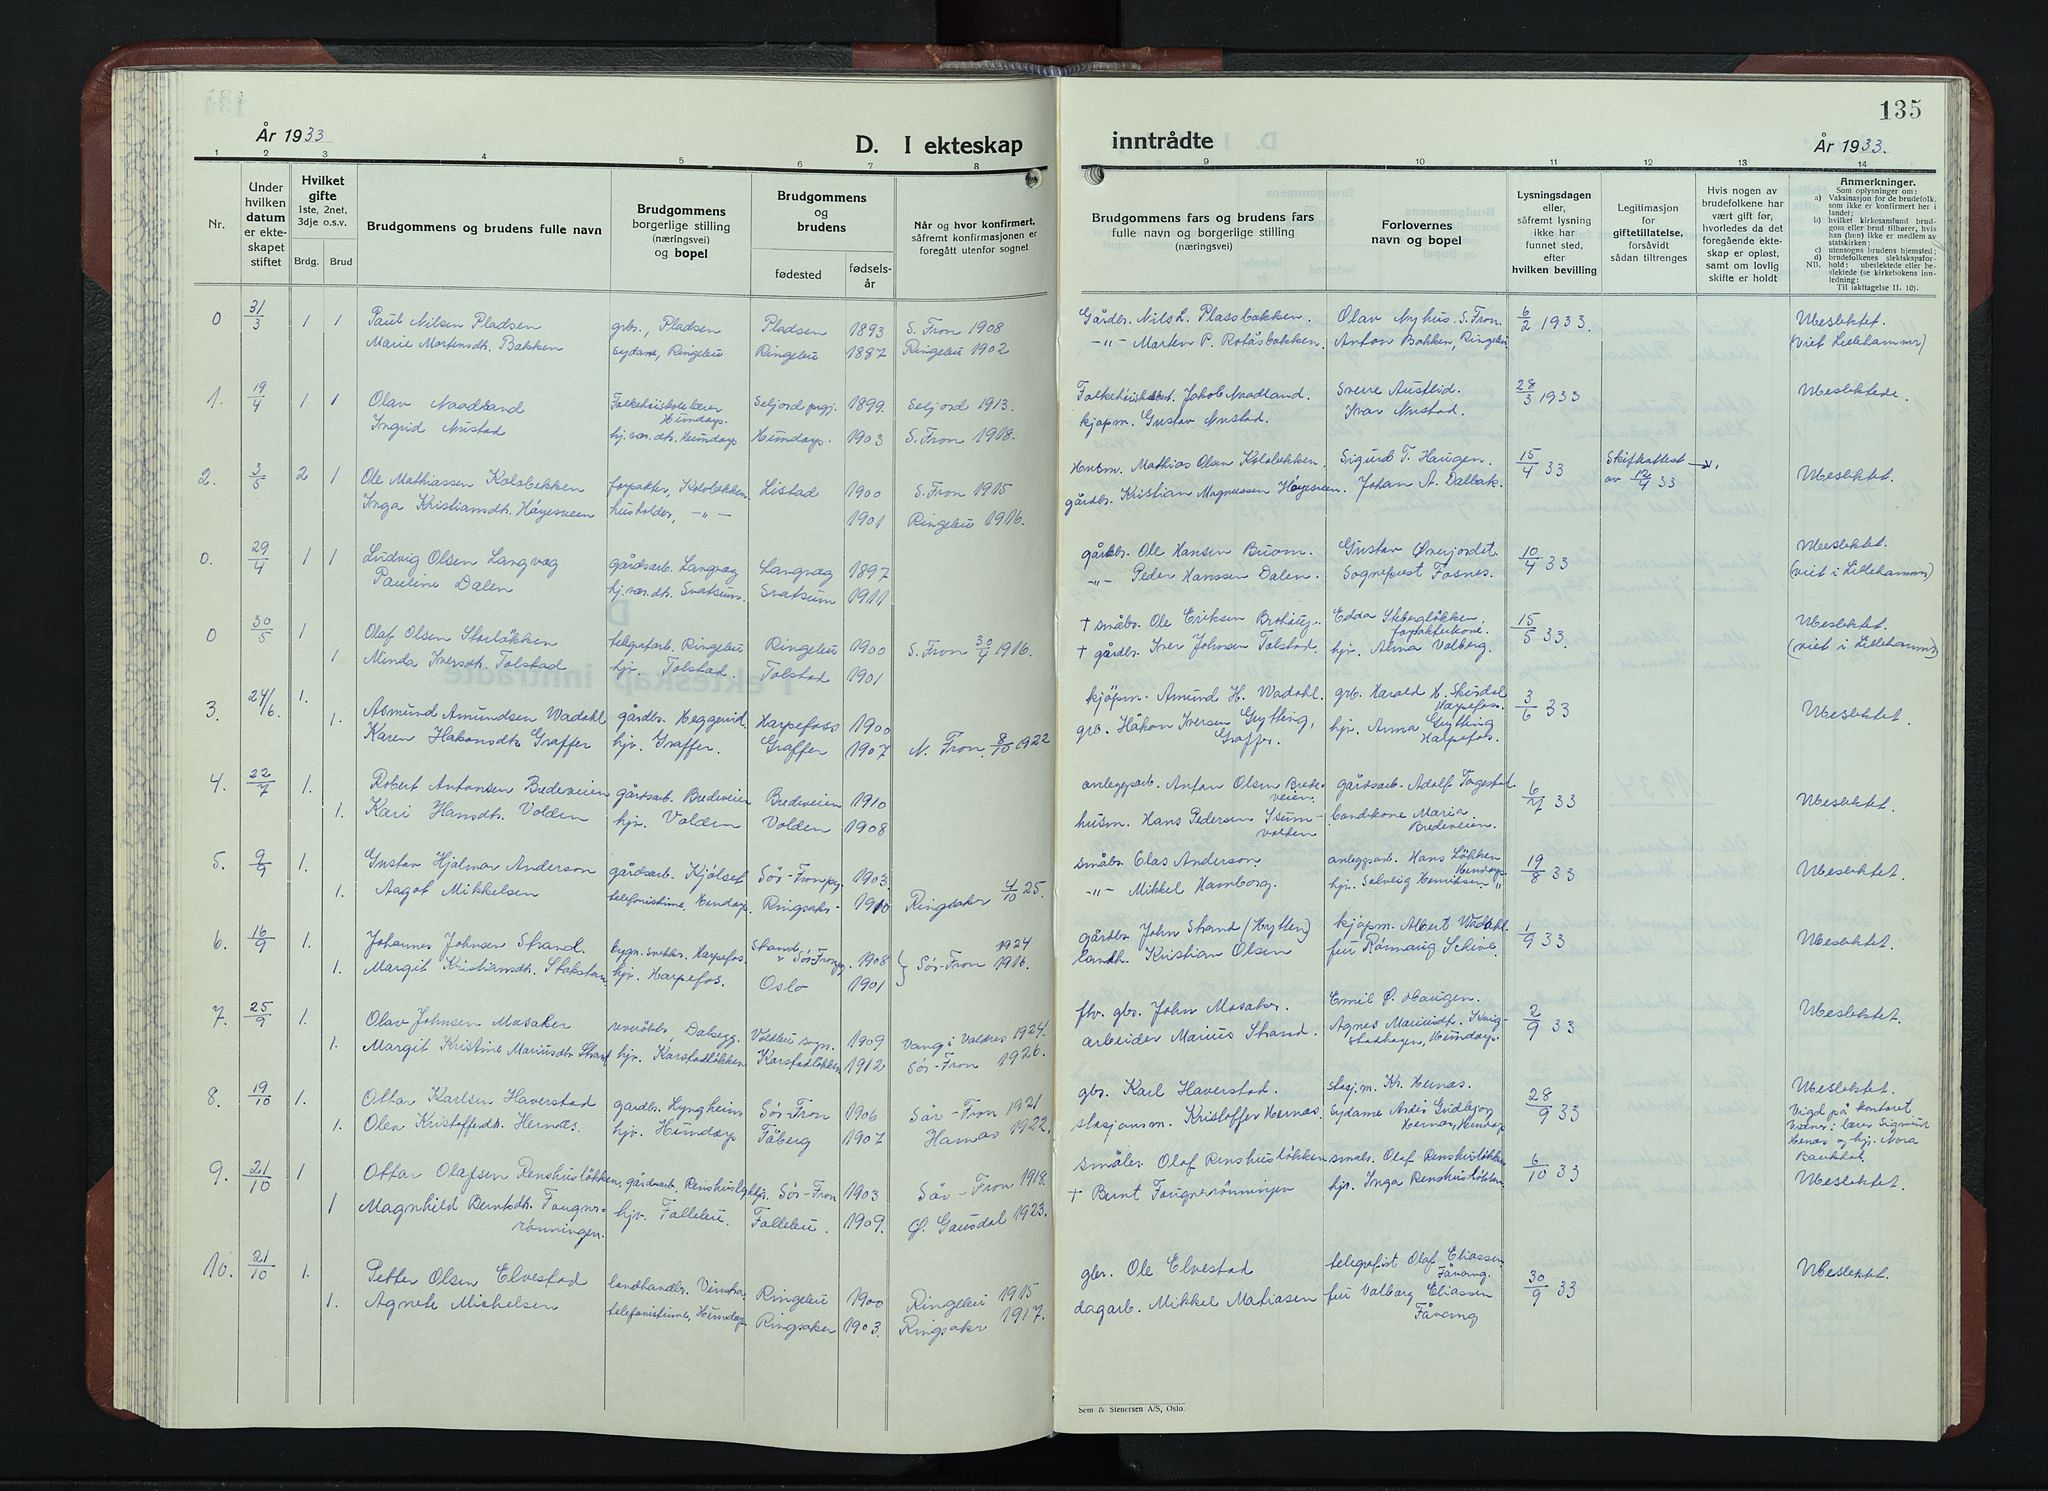 År 1933
D. I ekteskap
inntrådte
År 1933.
135
1 2 3 4 5 6 7 8 9 10 11 12 13 14
Nr.
Under hvilken datum er ekteskapet stiftet
Hvilket gifte
1ste, 2net, 3dje o.s.v.
Brdg. Brud
Brudgommens og brudens fulle navn
Brudgommens borgerlige stilling (næringsvei) og bopel
Brudgommens og brudens
fødested
fødsels-år
Når og hvor konfirmert, såfremt konfirmasjonen er foregått utenfor sognet
Brudgommens fars og brudens fars fulle navn og borgerlige stilling (næringsvei)
Forlovernes navn og bopel
Lysningsdagen eller, såfremt lysning ikke har funnet sted, efter hvilken bevilling
Legitimasjon for giftetillatelse, forsåvidt sådan tiltrenges
Hvis nogen av brudefolkene har vært gift før, hvorledes da det foregående ekteskap er opløst, samt om lovlig skifte er holdt
Anmerkninger.
Som oplysninger om:
a) Vaksinasjon for de brudefolk, som ikke er konfirmert her i landet;
b) hvilket kirkesamfund brudgom eller brud tilhører, hvis han (hun) ikke er medlem av statskirken;
c) utensogns brudens hjemsted;
d) brudefolkenes slektskapsforhold: ubeslektede eller beslektede (se kirkebokens innledning;
NB.
Til iakttagelse II. 10).
0 31/3 1 1 Paul Nilsen Pladsen grbr., Pladsen Pladsen 1893 S. Fron 1908 Gårdbr. Nils L. Plassbakken. Olav Nyhus. S. Fron. 6/2 1933. Ubeslektet.
Marie Mortensdt. Bakken sydame, Ringebu Ringebu 1897 Ringebu 1902 -"- Morten P. Rotåsbakken. Anton Bakken, Ringebu (viet Lillehammer)
1. 19/4 1 1 Olav Naadland Folkehøiskolelærer Hundorp. Seljord prgj. 1899. Seljord 1913. Jakob Naadland. Sverre Austlid. 28/3 1933 Ubeslektede.
Ingrid Nustad hj. vær. dt. Hundorp Hundorp. 1903 S. Fron 1918. kjøpm. Gustav Nustad. Ivar Nustad.
2. 3/5 2 1 Ole Mathiassen Kolobekken forpakter, Kolobekken Listad 1900 S. Fron 1915 Husm. Mathias Olsen Kolobekken. Sigurd T. Haugen. 15/4 33 Skifteattest av 12/4 33 Ubeslektet.
Inga Kristiansdt. Høyesveen husholder, -"- 1901 Ringebu 1916. gårdbr. Kristian Magnussen Høyesveen. Johan A. Dalbak.
0. 29/4 1 1 Ludvig Olsen Langvag gårdsarb. Langvag Langvag 1897 gårdbr. Ole Hansen Buom. Gustav Øverjordet. 10/4 33 Ubeslektet.
Pauline Dalen hj. vær. dt. Svatsum. Svatsum 1911 -"- Peder Hanssen Dalen. Sogneprest Fosnes. (viet i Lillehammer)
0 30/5 1 Olaf Olsen Storløkken telegrafarb. Ringebu Ringebu 1900 S. Fron 30/4 1916. † småbr. Ole Eriksen Brohaug. Edda Stebergløkken, forpakterkone. 15/5 33. Ubeslektet.
1 Minda Iversdt. Tolstad hjv. Tolstad. Tolstad 1901 † gårdbr. Iver Johnsen Tolstad. hjv. Alma Valberg. (viet i Lillehammer)
3. 24/6. 1. Asmund Amundsen Wadahl gårdbr. Heggerud. Harpefoss 1900 kjøpm. Amund H. Wadahl. grb. Harald H. Skurdal Harpefoss. 3/6 33 Ubeslektet.
1. Karen Håkonsdt. Graffer hjv. Graffer. Graffer 1907 N. Fron. 8/10 1922 grb. Håkon Iversen Grytting, Graffer. hjv. Anna Grytting Harpefos.
4. 22/7 1. Robert Antonsen Bredeveien gårdsarb. Bredeveien Bredeveien 1910 anleggsarb. Anton Olsen Bredeveien. gårdsarb. Adolf Torgestad 6/7 33 Ubeslektet.
1. Kari Hansdt. Volden hjv. Volden Volden 1908 husm. Hans Pedersen Isumvolden landkone Maria Bredeveien.
5. 9/9 1. Gustav Hjalmar Anderson gårdsarb. Kjølset Sør-Fron pg. 1903. småbr. Clas Anderson. anleggsarb. Hans Løkken Hundorp 19/8 33 Ubeslektet.
1. Aagot Mikkelsen telefonistinne, Hundorp. Ringsaker 1910 Ringsaker 4/10 25. -"- Mikkel Hamborg. hjv. Solveig Henriksen "
6. 16/9 1. Johannes Johnsen Strand. bygn. snekker. Harpefos. Strand, Sør-Fron pg. 1908 Sør-Fron 1924 gårdbr. John Strand (Krytten) kjøpm. Albert Wadahl 1/9 33 Ubeslektet.
1. Margit Kristiansdt. Stokstad hjv. Harpefos. Oslo 1901 1916. landh. Kristian Olsen fru Rønnaug Schive.
7. 25/9 1. Olav Johnsen Mosaker Dalsegg. Vestre 1909 Vang i Valdres 1924. fhv. gbr. John Mosaker. Emil Ø. Haugen. 2/9 33 Ubeslektet.
1. Margit Kristine Mariusdt. Strand hjv. Karstadløkken Karstadløkken 1912 Sør-Fron 1926. arbeider Marius Strand. Agnes Mariusdt. Kvigstadhagen, Hundorp.
8. 19/10 1. Ottar Karlsen Haverstad gardbr. Lyngheim Sør-Fron 1906 Sør-Fron 1921 gbr. Karl Haverstad. stasj.m. Kr. Hernæs. 28/9 33 Ubeslektet.
1. Olea Kristoffersdt. Hernæs. hjv. Hundorp Fåberg 1907 Hamar 1922. stasjonsm. Kristoffer Hernæs. Sydame Ardis Gudbjør Hernæs, Hundorp Vigd på kontoret Vidner: lærer Sigmund Hernæs og hjv. Nora Baukhol.
9. 21/10 1 Ottar Olafsen Renshusløkken, gårdsarb. Renshusløkken Sør-Fron 1903 Sør-Fron 1918. småbr. Olaf Renshusløkken småbr. Olaf Renshusløkken 6/10 33 Ubeslektet.
1 Magnhild Berntsdt. Fougnerrønningen. hjv. Follebu. Follebu. 1909. Ø. Gausdal 1923. † Bernt Fougnerrønningen hjv. Inga Renshusløkken
10. 21/10 1. Petter Olsen Elvestad landhandler. Vinstra. Ringebu 1900 Ringebu 1915 gbr. Ole Elvestad telegrafist Olaf Eliassen Fåvang. 30/9 33 Ubeslektet.
1. Agnete Michelsen telefonistinne, Hundorp Ringsaker 1903. Ringsaker 1917. dagarb. Mikkel Matiasen fru Valborg Eliassen Fåvang
Sem & Stenersen A/S, Oslo.